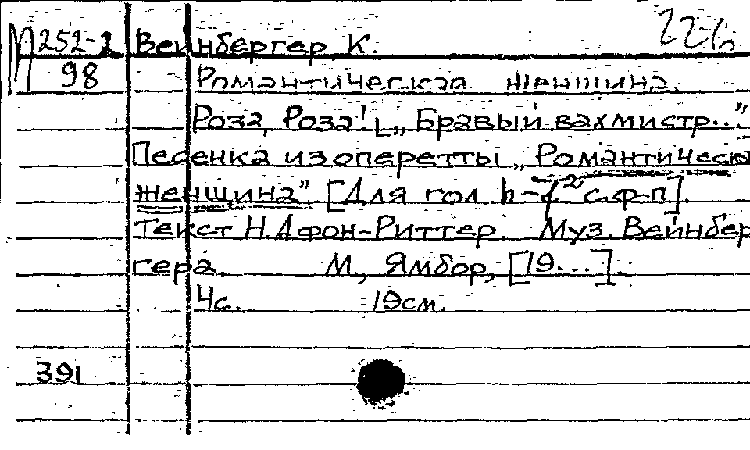 М252-2 Вейнбергер, К.
98 Романтическая женщина.
Роза, Роза! [„Бравый вахмистр..."
Песенка из оперетты „Романтическ
женщина" [Для гол h- с ф-п].
Текст Н.А фон-Риттер. Муз. Вейнбер
гера. М., Ямбор, [19...].
4с. 19см.
391